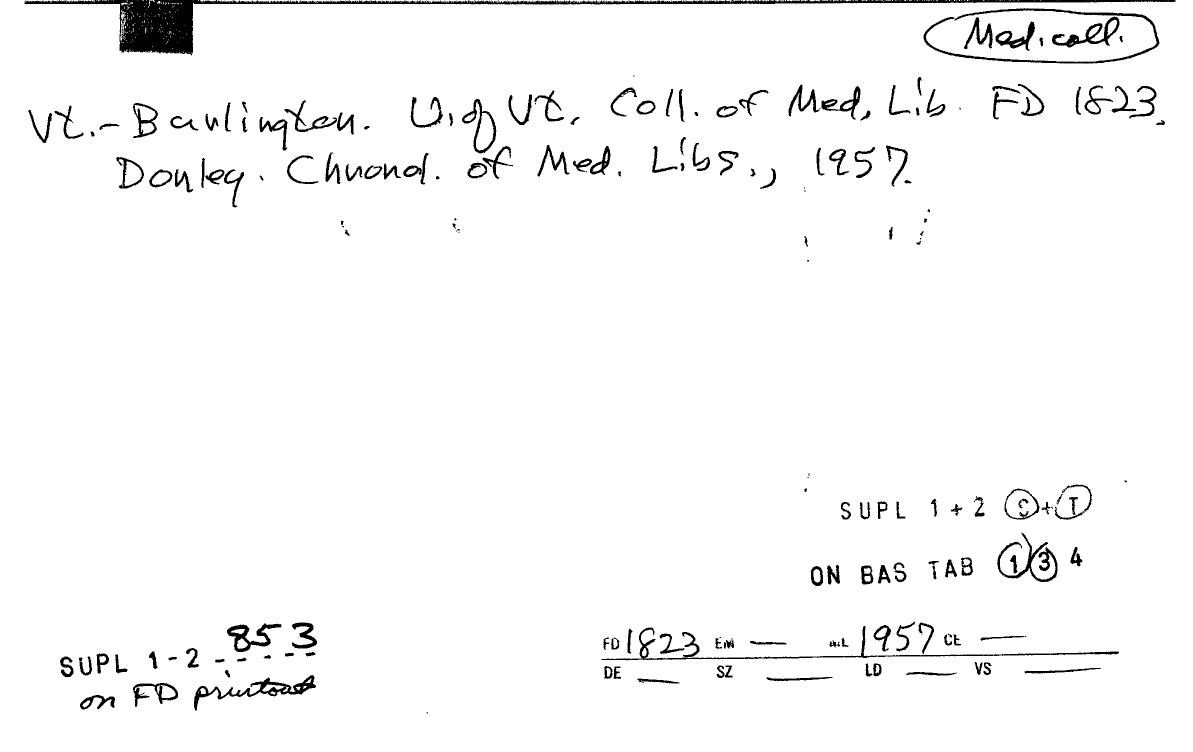 Med. coll.
Vt.- Burlington. U. of Vt. Coll. of Med. Lib. FD 1823.
Donley. Chronol. of Med. Libs., 1957.
SUPL 1 + 2 S + T
ON BAS TAB 1 3 4
SUPL 1-2 - 853
on FD printout
FD 1823 EM — 1957 CE —
DE — SZ — LD — VS —